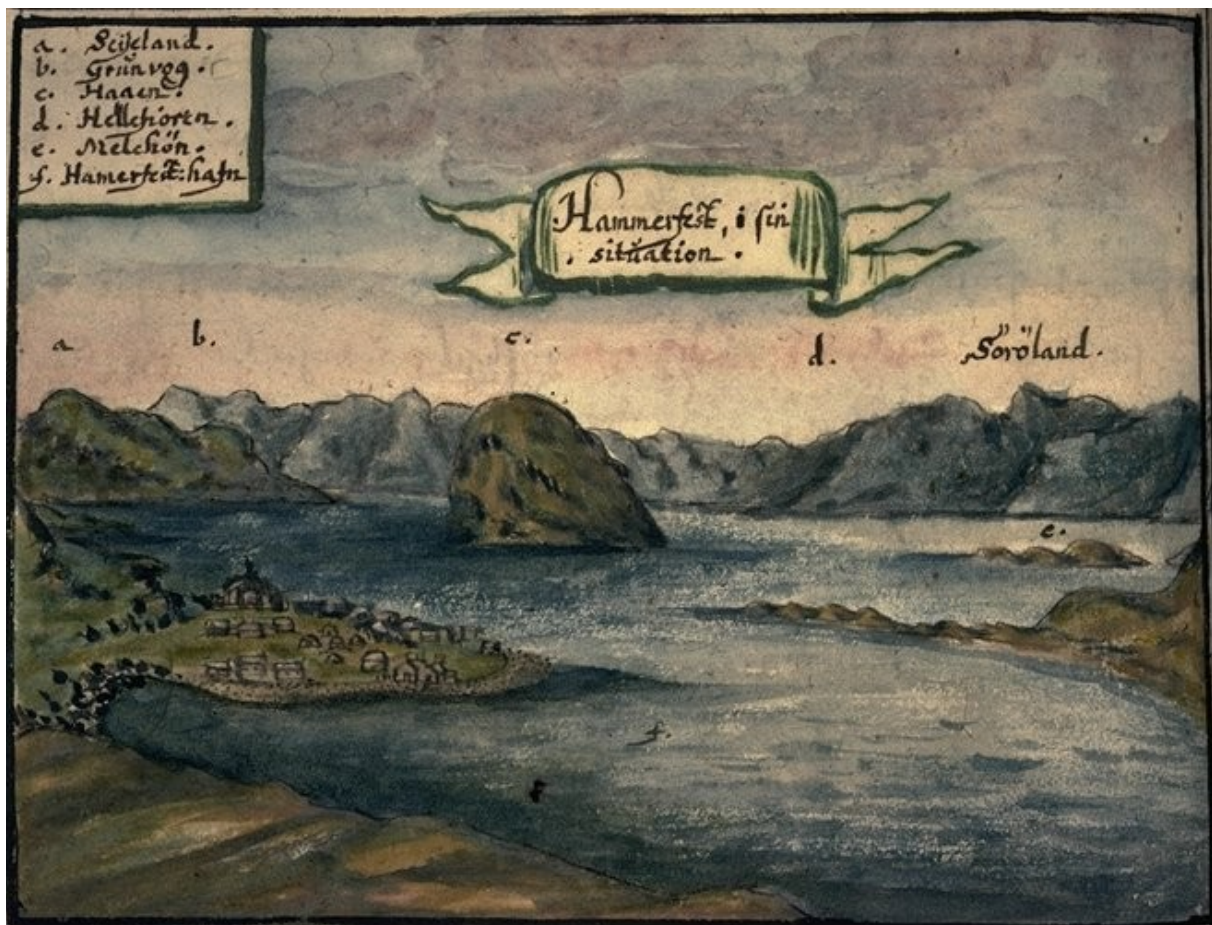 a. Seijeland.
b. Grünvog.
c. Haaen.
d. Hellefiorten.
e. Melchön.
f. Hamerfest: hafn
Hammerfest, i sin
situation.
a
b.
c.
d.
Soröland.
e.
f.